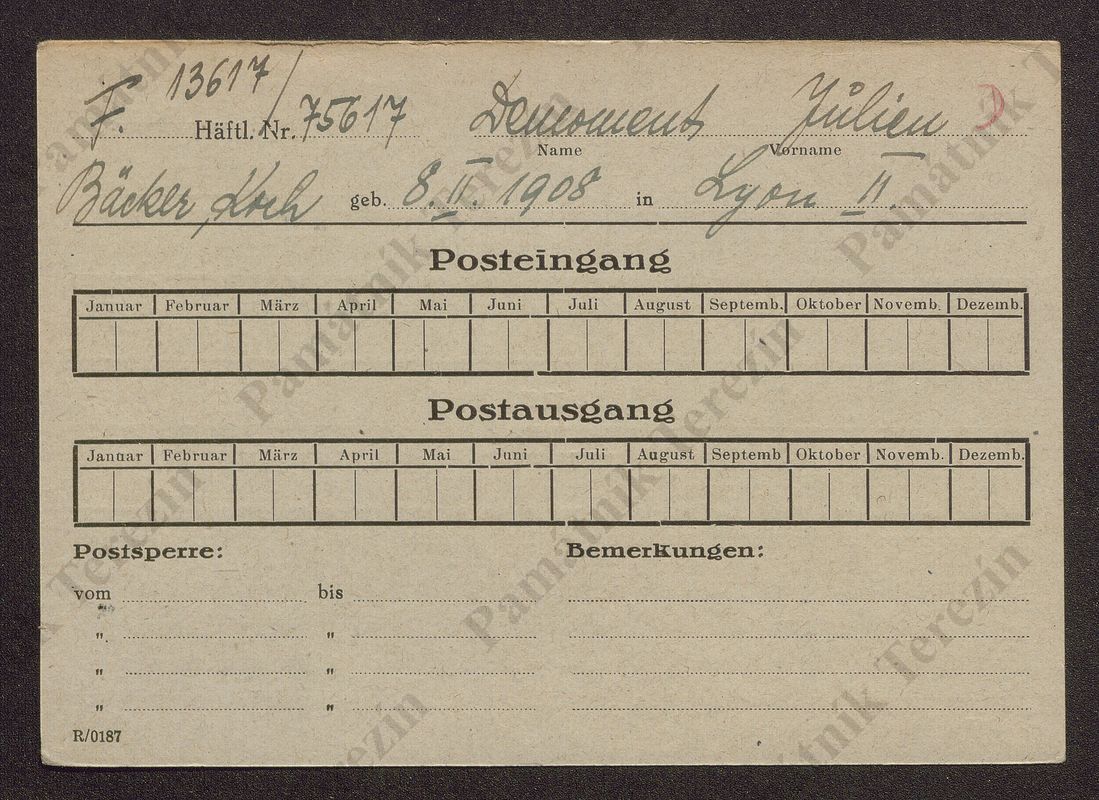 F. 13617/
Häftl. Nr. 75617 Julien
Name Vorname
Bäcker, Koch geb. 8. II. 1908 in Lyon II.
Posteingang
Januar Februar März April Mai Juni Juli August Septemb. Oktober Novemb. Dezemb.
Postausgang
Januar Februar März April Mai Juni Juli August Septemb Oktober Novemb. Dezemb.
Postsperre: Bemerkungen:
vom bis
" "
" "
" "
R/0187
Památník Terezín